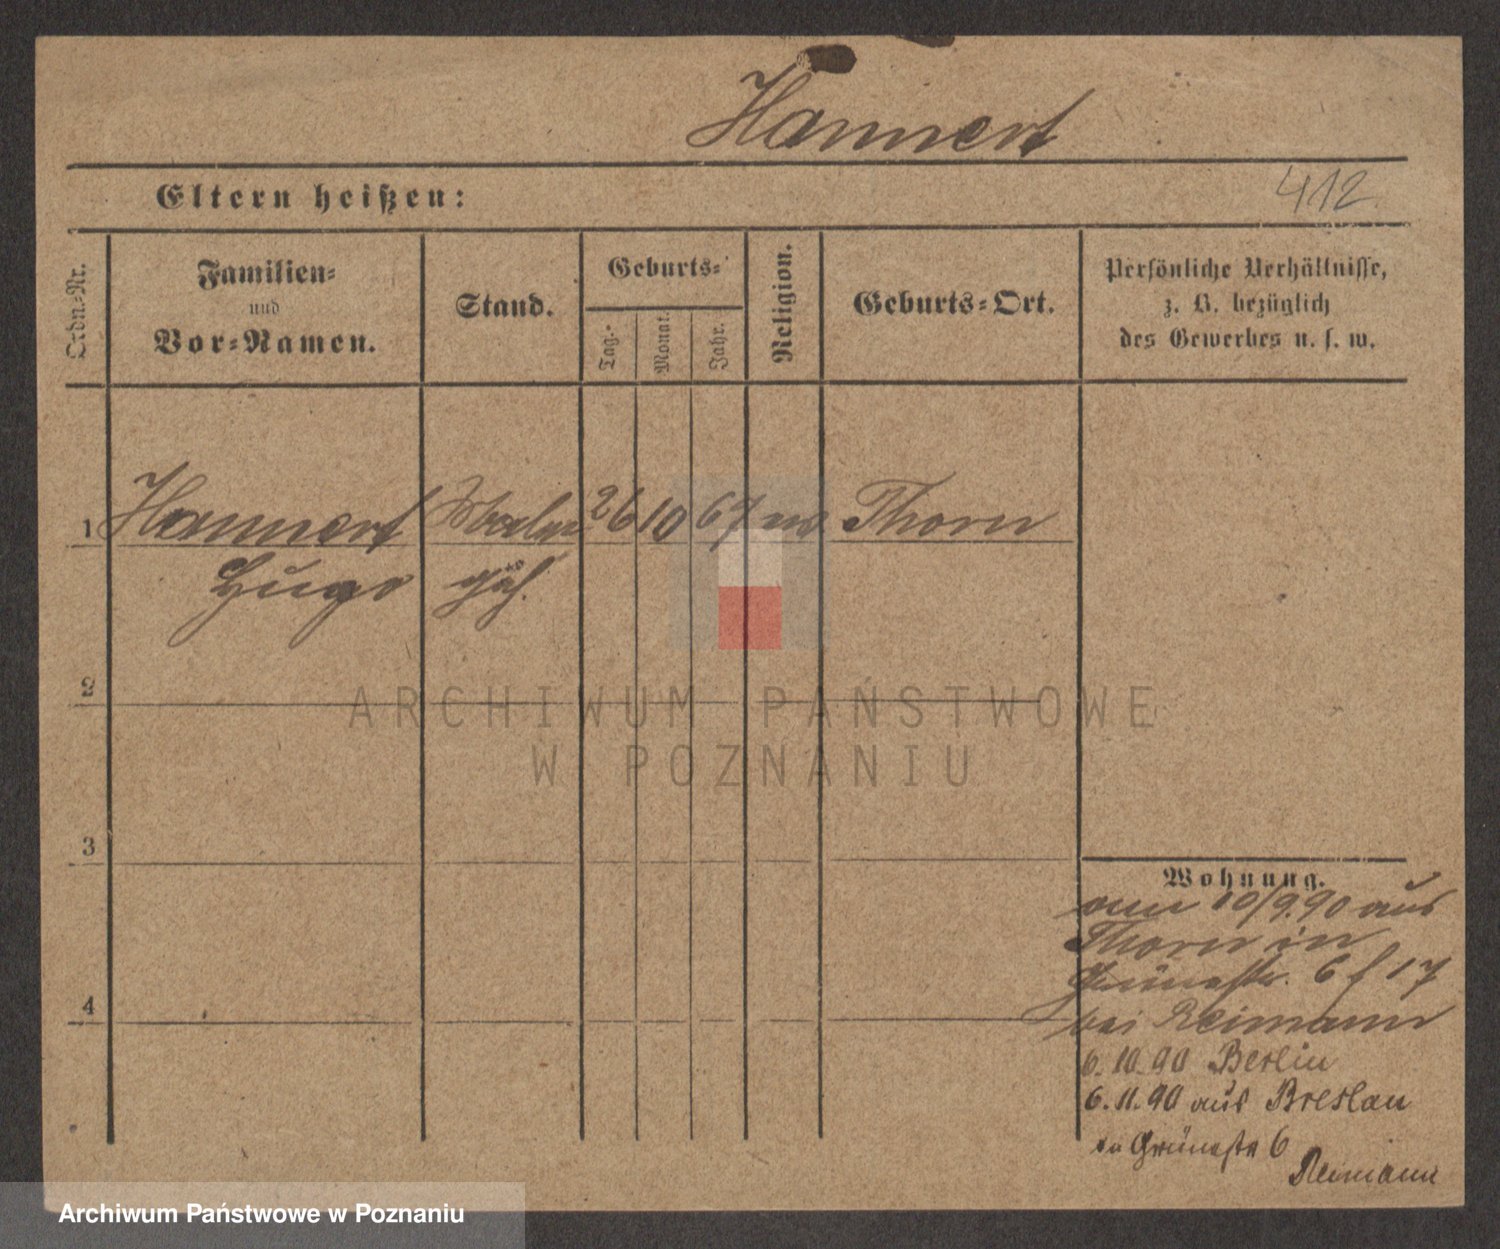 Hannert
Eltern heißen:
412
Ordn.-Nr.
Familien-
und
Vor-Namen.
Stand.
Geburts-
Tag.
Monat.
Jahr.
Religion.
Geburts-Ort.
Persönliche Verhältnisse,
z. B. bezüglich
des Gewerbes u. s. w.
1 Hannert Maler 26 10 67 Thorn
Hugo
2
ARCHIWUM PAŃSTWOWE
W POZNANIU
3
Wohnung.
10/9.90 aus
Thorn in
Grünestr. 6 f 17
bei Reimann
6.10.90 Berlin
6.11.90 aus Breslau
4
in Grünestr 6
Reimann
Archiwum Państwowe w Poznaniu